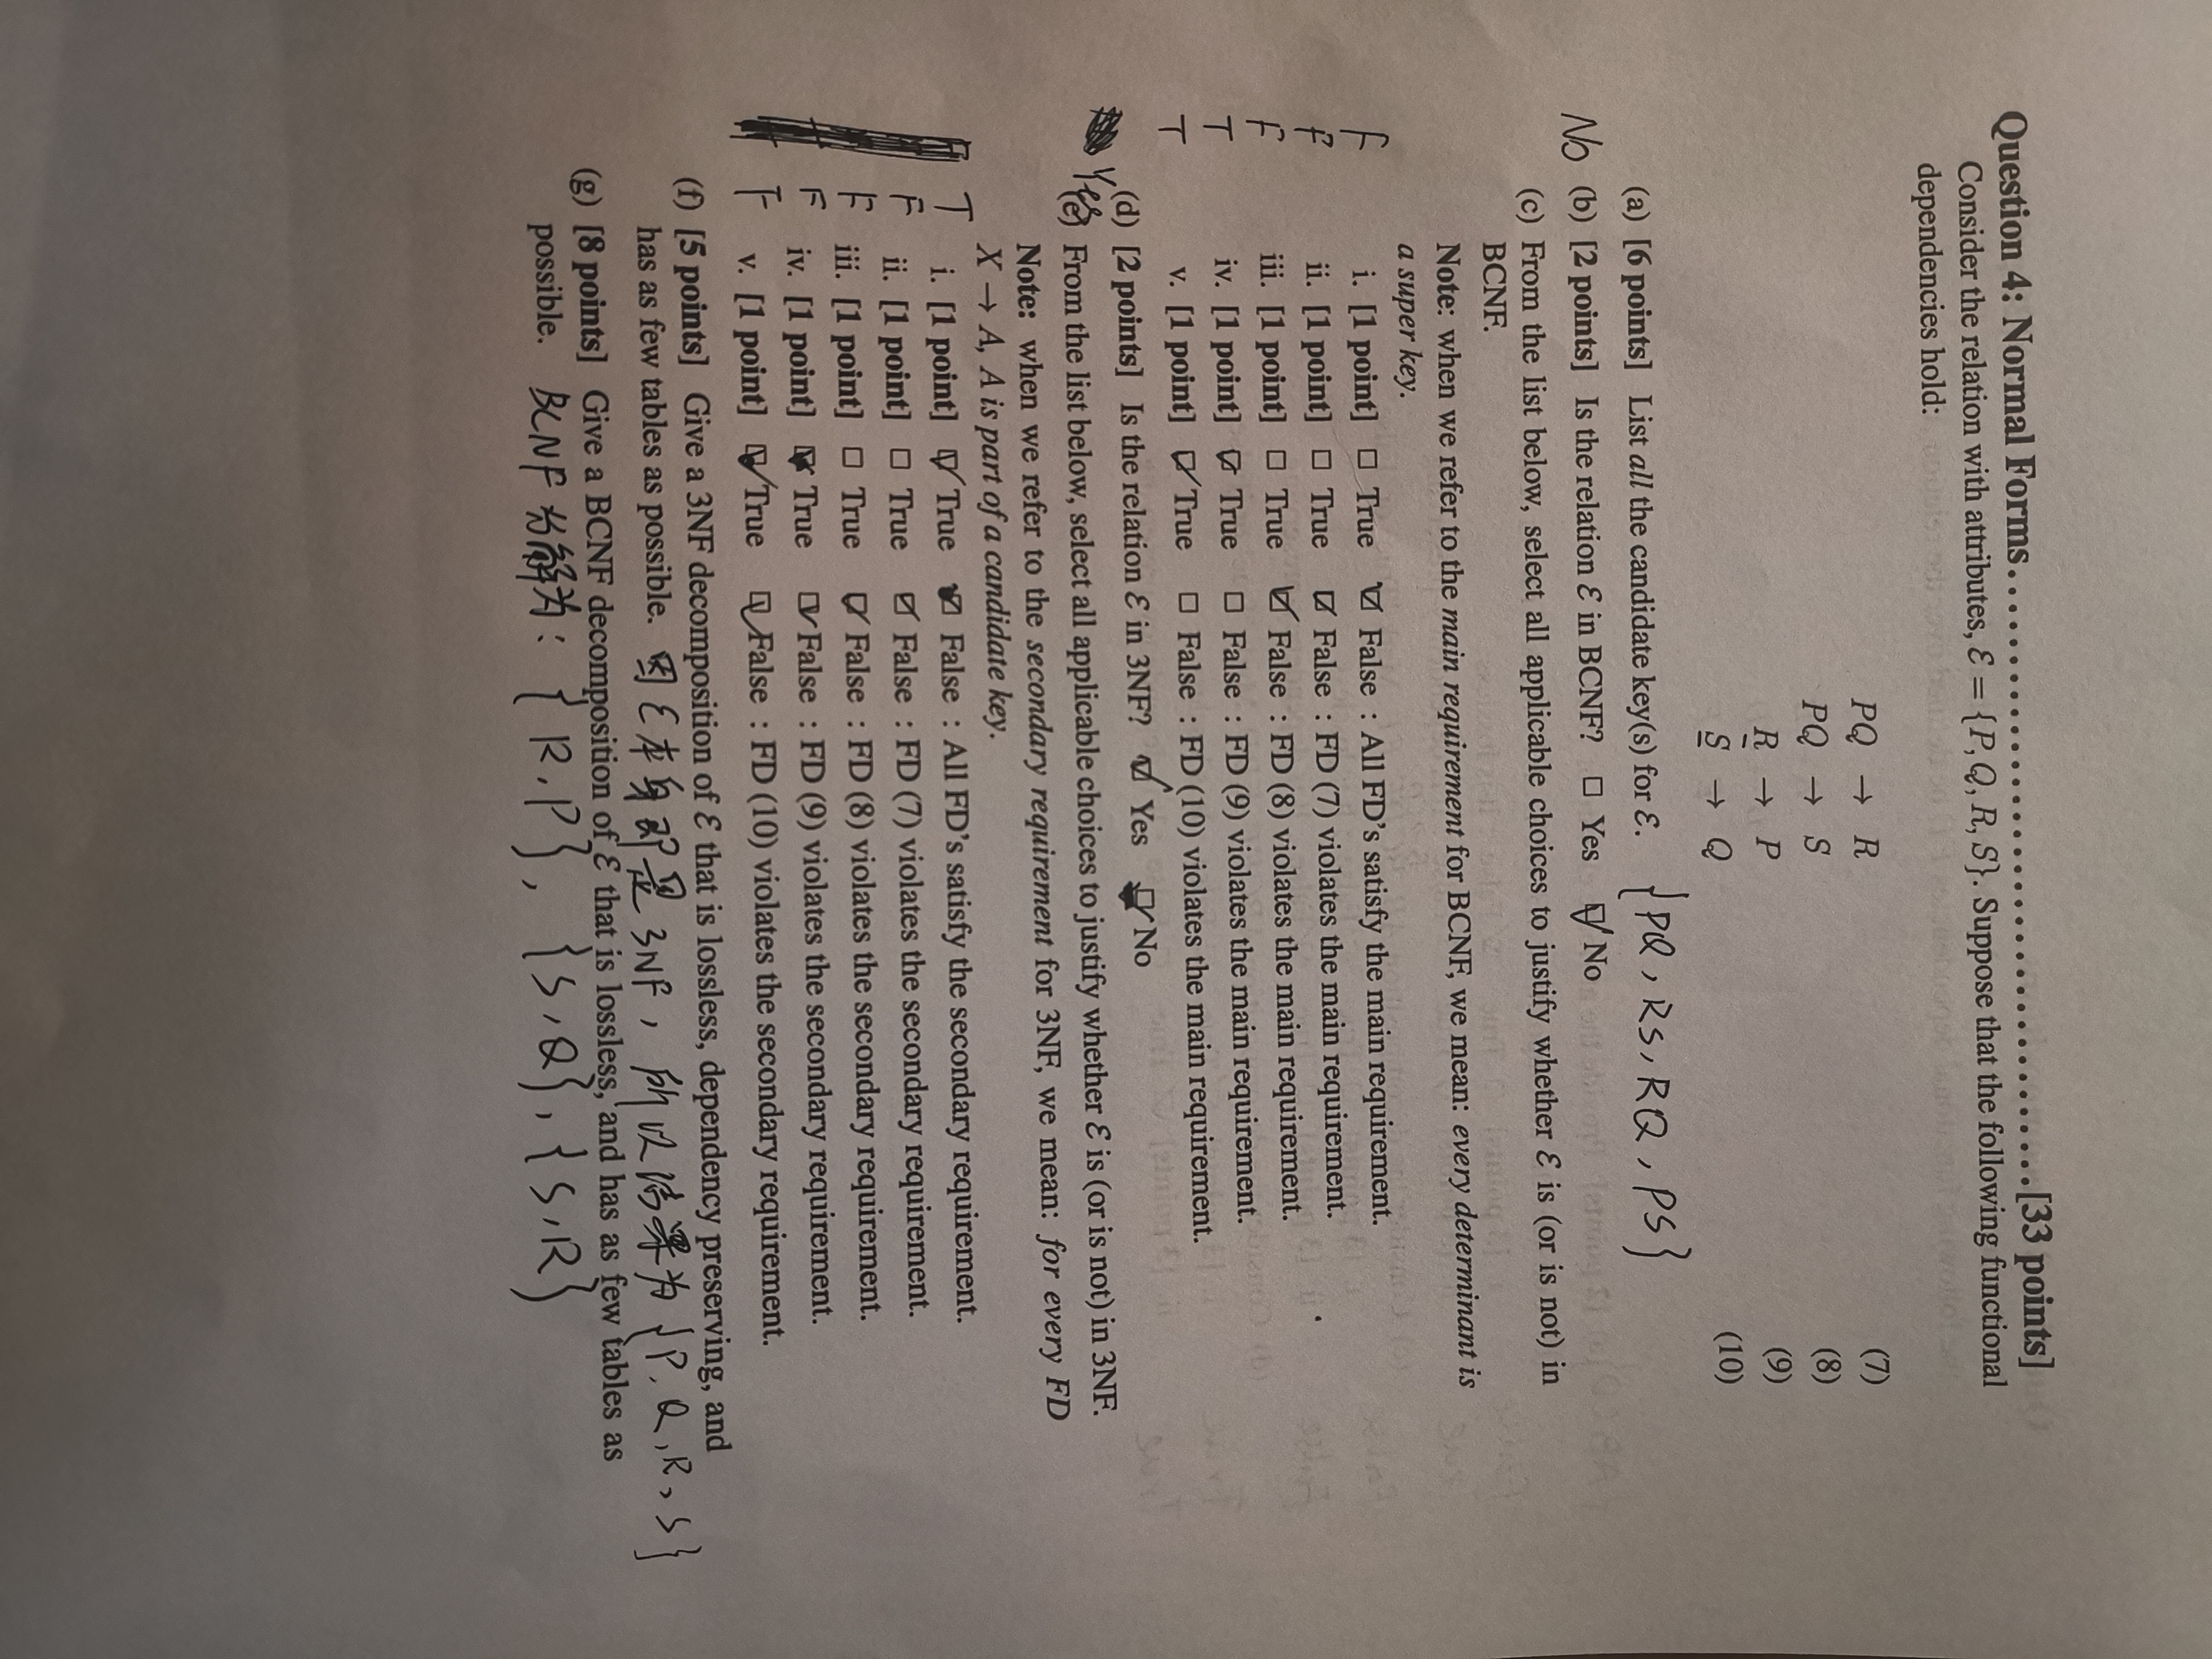 Question 4: Normal Forms....................................[33 points]
Consider the relation with attributes, ℰ = {P, Q, R, S}. Suppose that the following functional
dependencies hold:
PQ → R (7)
PQ → S (8)
R → P (9)
S → Q (10)
(a) [6 points] List all the candidate key(s) for ℰ. {PQ, RS, RQ, PS}
No (b) [2 points] Is the relation ℰ in BCNF? □ Yes ☑ No
(c) From the list below, select all applicable choices to justify whether ℰ is (or is not) in
BCNF.
Note: when we refer to the main requirement for BCNF, we mean: every determinant is
a super key.
F i. [1 point] □ True ☑ False : All FD's satisfy the main requirement.
F ii. [1 point] □ True ☑ False : FD (7) violates the main requirement.
F iii. [1 point] □ True ☑ False : FD (8) violates the main requirement.
T iv. [1 point] ☑ True □ False : FD (9) violates the main requirement.
T v. [1 point] ☑ True □ False : FD (10) violates the main requirement.
(d) [2 points] Is the relation ℰ in 3NF? ☑ Yes ☑ No
Yes
(e) From the list below, select all applicable choices to justify whether ℰ is (or is not) in 3NF.
Note: when we refer to the secondary requirement for 3NF, we mean: for every FD
X → A, A is part of a candidate key.
T i. [1 point] ☑ True ☑ False : All FD's satisfy the secondary requirement.
F ii. [1 point] □ True ☑ False : FD (7) violates the secondary requirement.
F iii. [1 point] □ True ☑ False : FD (8) violates the secondary requirement.
F iv. [1 point] ☑ True ☑ False : FD (9) violates the secondary requirement.
F v. [1 point] ☑ True ☑ False : FD (10) violates the secondary requirement.
(f) [5 points] Give a 3NF decomposition of ℰ that is lossless, dependency preserving, and
has as few tables as possible. 因ℰ本身即是3NF, 所以结果为{P, Q, R, S}
(g) [8 points] Give a BCNF decomposition of ℰ that is lossless, and has as few tables as
possible. BCNF分解为: {R, P}, {S, Q}, {S, R}